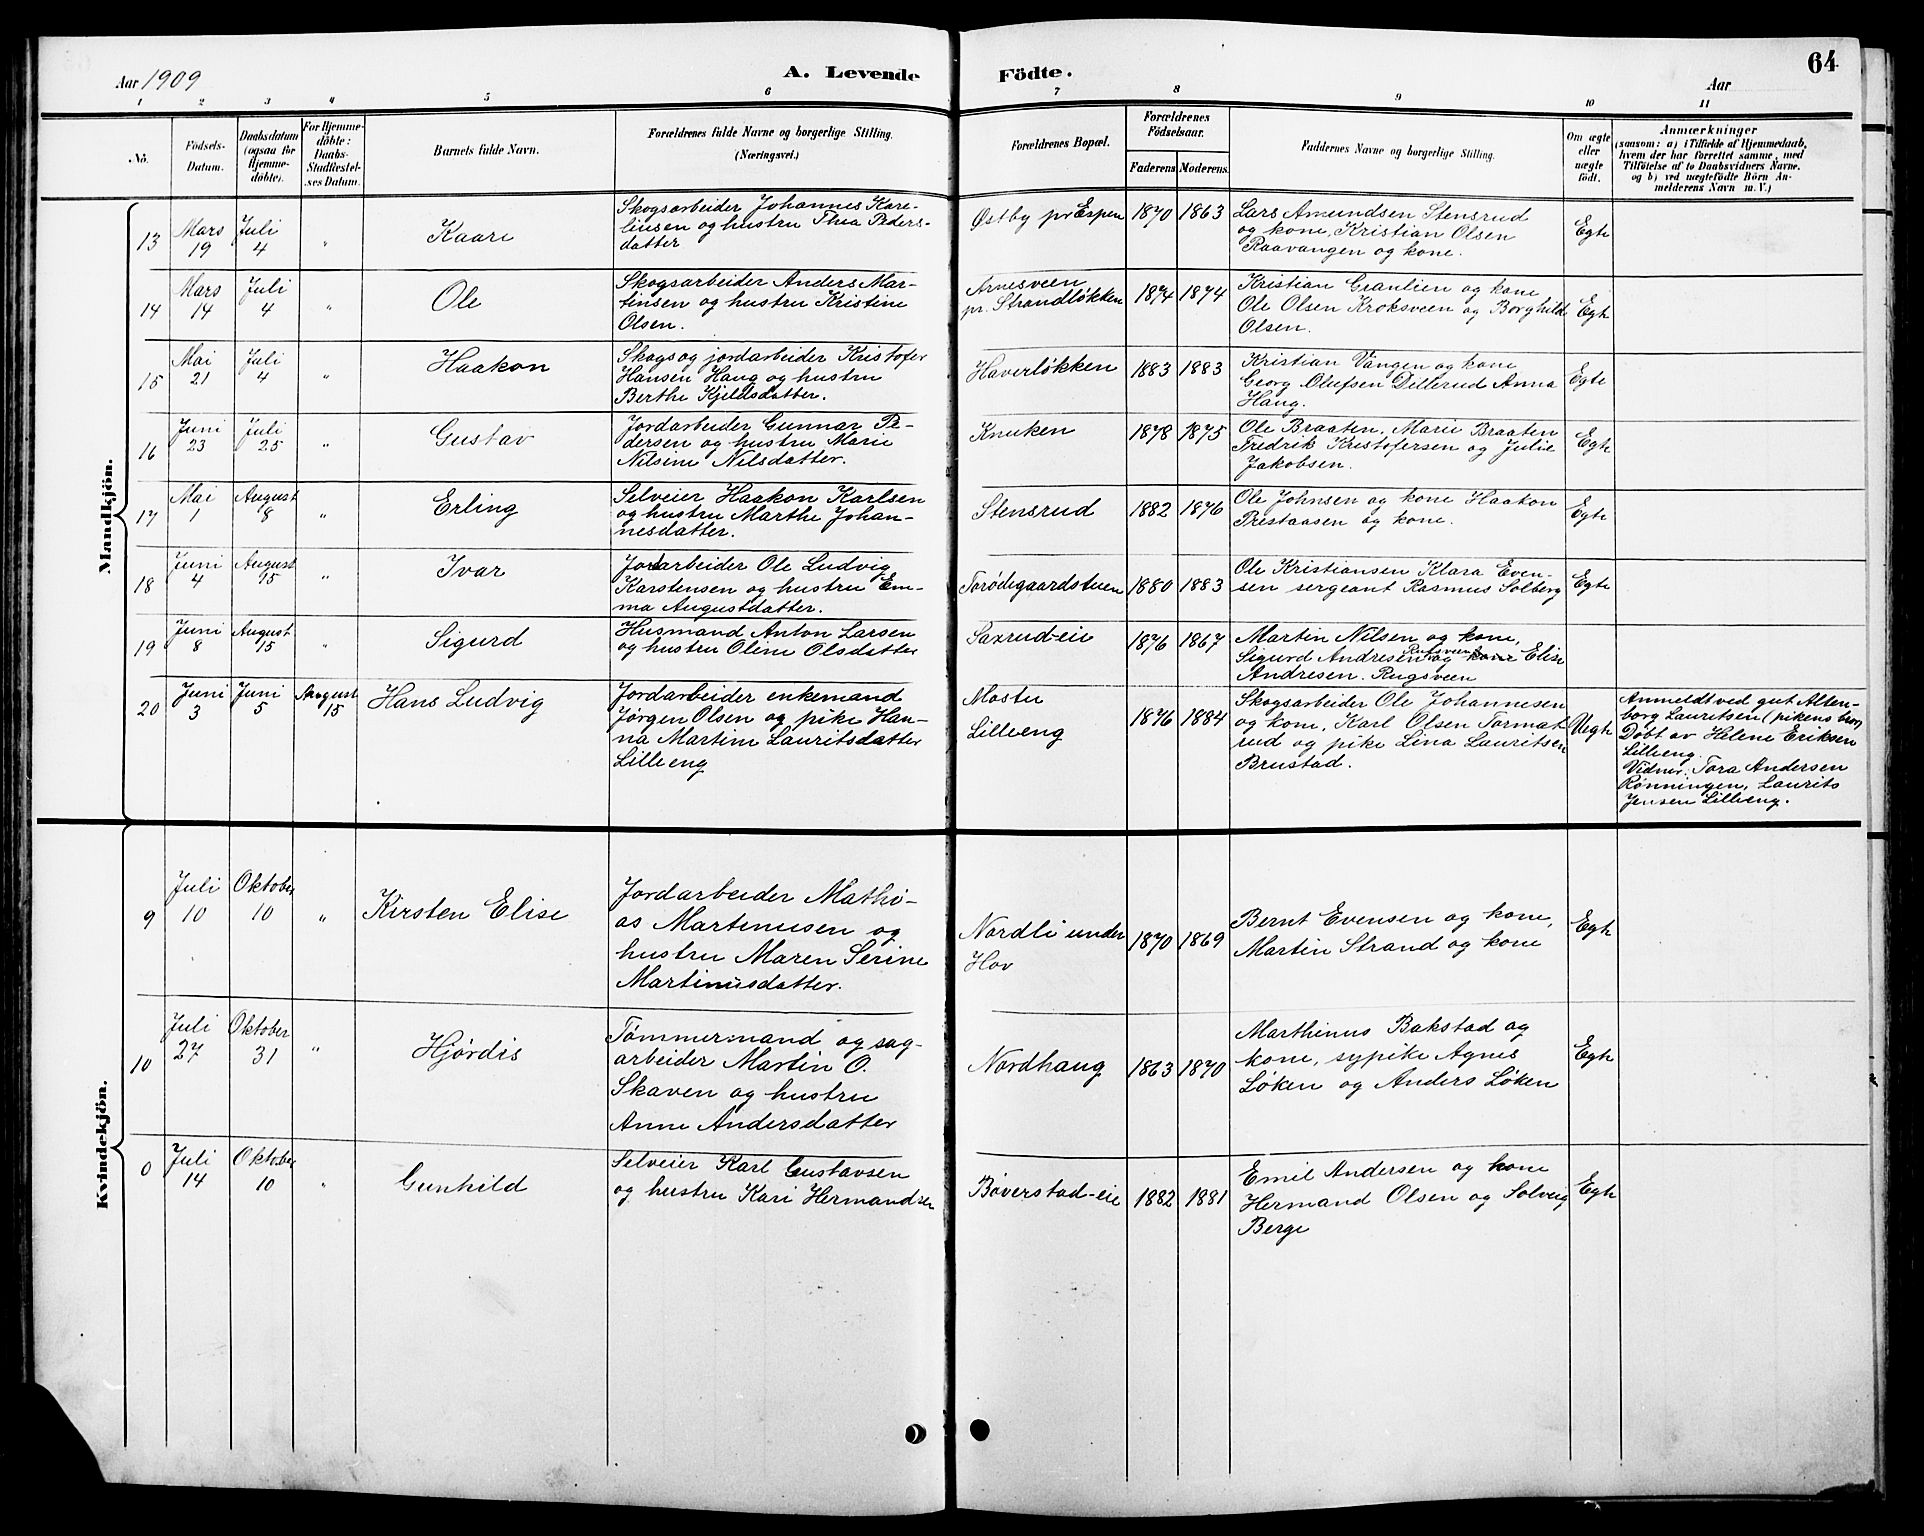 Aar 1909
A. Levende Födte.
Aar
64
1 2 3 4 5 6 7 8 9 10 11
No.
Födsels-
Datum.
Daabsdatum
(ogsaa for
Hjemme-
döbte).
For Hjemme-
döbte:
Daabs-
Stadfæstel-
ses Datum.
Barnets fulde Navn.
Forældrenes fulde Navne og borgerlige Stilling.
(Næringsvei.)
Forældrenes Bopæl.
Forældrenes
Födselsaar.
Faderens Moderens.
Faddernes Navne og borgerlige Stilling.
Om ægte
eller
uægte
födt.
Anmærkninger
(saasom: a) i Tilfælde af Hjemmedaab,
hvem der har forrettet samme, med
Tilföielse af to Daabsvidners Navne.
og b) ved uægtefödte Börn An-
melderens Navn m. V.)
Mandkjön.
13
Mars
19
Juli
4
"
Kaare
Skogsarbeider Johannes Kare-
liusen og hustru Thea Peders-
datter
Østby pr Espen
1870 1863
Lars Amundsen Stensrud
og kone, Kristian Olsen
Raavangen og kone.
Egte
14
Mars
14
Juli
4
"
Ole
Skogsarbeider Anders Mar-
tinsen og hustru Kristine
Olsen.
Arnesveen
pr. Strandløkken
1874 1874
Kristian Granlien og kone
Ole Olsen Kroksveen og Borghild
Olsen.
Egte
15
Mai
21
Juli
4
"
Haakon
Skogs og jordarbeider Kristofer
Hansen Haug og hustru
Berthe Kjeldsdatter.
Haverløkken
1883 1883
Kristian Vangen og kone
Georg Olufsen Dillerud Anna
Haug.
Egte
16
Juni
23
Juli
25
"
Gustav
Jordarbeider Gunnar Pe-
dersen og hustru Marie
Nilsine Nilsdatter.
Knuken
1878 1875
Ole Braaten, Marie Braaten
Fredrik Kristofersen og Julie
Jakobsen.
Egte
17
Mai
1
August
8
"
Erling
Selveier Haakon Karlsen
og hustru Marthe Johan-
nesdatter.
Stensrud
1882 1876
Ole Johnsen og kone Haakon
Prestaasen og kone.
Egte
18
Juni
4
August
15
"
Ivar
Jordarbeider Ole Ludvig
Karstensen og hustru Em-
ma Augustdatter.
Torødegaardstuen
1880 1883
Ole Kristiansen Klara Even-
sen sergeant Rasmus Solberg
Egte
19
Juni
8
August
15
"
Sigurd
Husmand Anton Larsen
og hustru Oline Olsdatter
Saxrud-eie
1876 1867
Martin Nilsen og kone,
Sigurd Andresen Rugsveen og kone Elise
Andresen. Rugsveen
20
Juni
3
Juni
5
August
15
Hans Ludvig
Jordarbeider enkemand
Jørgen Olsen og pike Han-
na Martine Lauritsdatter
Lilleeng
Mostu
Lilleeng
1876 1884
Skogsarbeider Ole Johannesen
og kone, Karl Olsen Tormat
rud og pike Lina Lauritsen
Brustad.
Uegte
Anmeldt ved gut Alten-
borg Lauritsen (pikens bror)
Døbt av Helene Eriksen
Lilleeng
Vidner: Tora Andersen
Rønningen, Laurits
Jensen Lilleeng.
Kvindekjön.
9
Juli
10
Oktober
10
"
Kirsten Elise
Jordarbeider Mathi-
as Martinusen og
hustru Maren Serine
Martinusdatter.
Nordli under
Hov
1870 1869
Bernt Evensen og kone,
Martin Strand og kone
Egte
10
Juli
27
Oktober
31
"
Hjørdis
Tømmermand og sag-
arbeider Martin O.
Skaven og hustru
Anne Andersdatter
Nordhaug
1863 1870
Marthinus Bakstad og
kone, sypike Agnes
Løken og Anders Løken
Egte
0
Juli
14
Oktober
10
"
Gunhild
Selveier Karl Gustavsen
og hustru Kari Hermandsen
Bøverstad-eie
1882 1881
Emil Andersen og kone
Hermand Olsen og Solveig
Berge
Egte